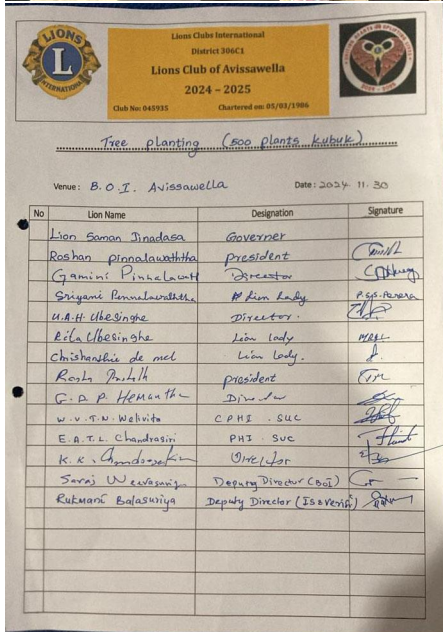 LIONS
L
INTERNATIONAL
Lions Clubs International
District 306C1
Lions Club of Avissawella
2024 – 2025
Club No: 045935 Chartered on: 05/03/1986
Tree planting (500 plants kubuk)
Venue : B.O.I. Avissawella Date : 2024 11. 30
No Lion Name Designation Signature
Lion Saman Jinadasa Governer
Roshan pinnalawaththa president
Gamini Director
Sriyani Pennalawaththa Lion Lady P.S.S. Perera
U.A.H. Ubesinghe Director.
Rita Ubesinghe Lion lady
Chrishanthie de mel Lion lady.
president
G.D.P. Hemantha Director
W.V.T.N. Welivita CPHI . SUC
E.A.T.L. Chandrasiri PHI . SUC
K.K. Director
Saroj Weerasinha Deputy Director (BOI)
Rukmani Balasuriya Deputy Director